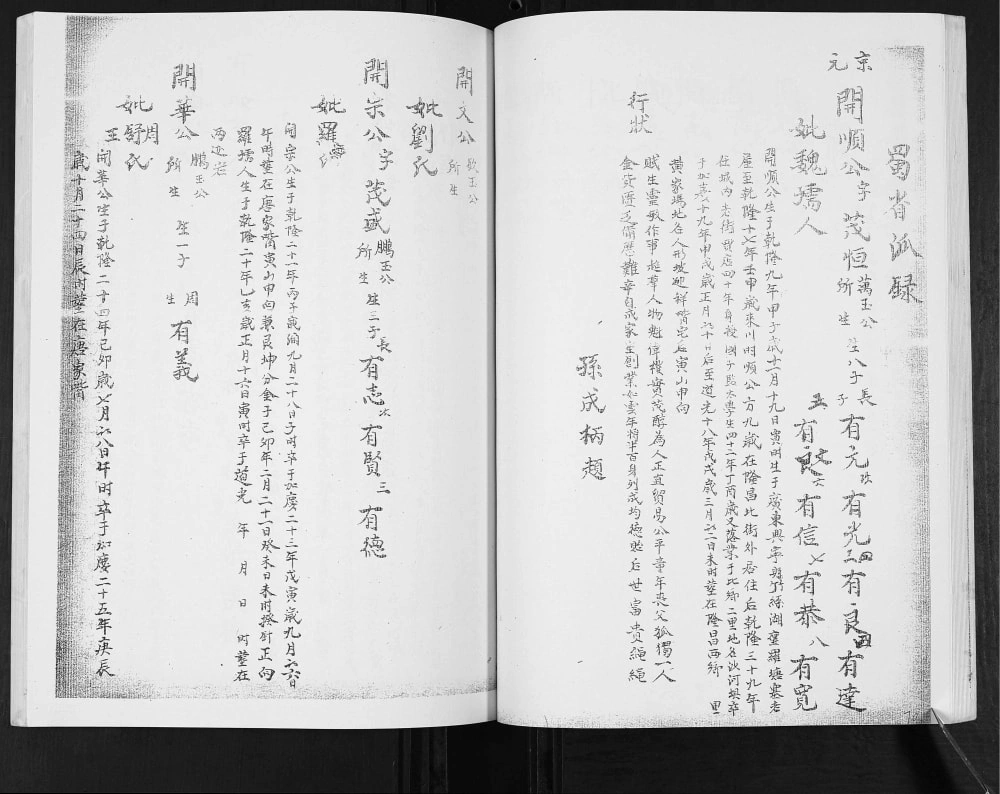 蜀省派録
京元
開順公字茂恒萬玉公所生生八子長子有元次有光三有良四有達
妣魏孺人五有文六有信七有恭八有寬
開順公生于乾隆九年甲子歲十一月十九日寅時生于廣東興寧縣竹絲湖壹羅塘寨老
屋至乾隆十七年壬申歲來川时順公方九歲在隆昌北街外居住后乾隆三十九年
住城內老街貨店四十年身授國子監太學生四十二年丁酉歲又落業于北鄉二里地名沙河壩卒
于加慶十九年甲戌歲正月六十日后至道光十八年戊戌歲三月六二日未时塟在隆昌西鄉 里
黄家塆地名人形坡 祥階宅后寅山申向
行状
賦生靈敏作事超羣人物魁偉樸實茂醇為人正直貿易公平童年喪父孤獨一人
金貨匮乏備歷難辛自成家至創業如雲年將半百身列成均德貽后世富貴繩繩
孫成柄題
開文公歌玉公所生
妣劉氏
開宗公字茂盛鵬玉公所生生三子長有志次有賢三有德
妣羅氏
開宗公生于乾隆二十一年丙子歲潤九月二十八日子时卒于加慶二十三年戊寅歲九月六六日
午时塟在唐家階寅山申向兼艮坤分金于己卯年二月二十一日癸未日未时 正向
羅孺人生于乾隆二十年乙亥歲正月十六日寅时卒于道光 年 月 日 时塟在
西边岩
開華公鵬玉公所生 生一子 周生有義
妣周舒氏王
開華公生于乾隆二十四年己卯歲七月六八日午时卒于加慶二十五年庚辰
歲十月二十四日辰时塟在唐家階